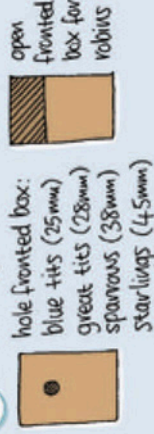 hole fronted box:
blue tits (25mm)
great tits (28mm)
sparrows (38mm)
starlings (45mm)
open
fronted
box for
robins